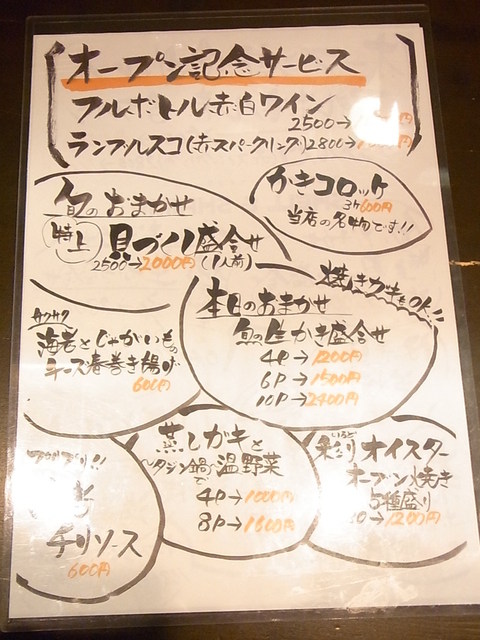 オープン記念サービス
フルボトル赤白ワイン
2500→
ランブルスコ(赤スパークリング)2800→
かきコロッケ
3ケ600円
当店の名物です!!
旬のおまかせ
特上 貝づくし盛合せ
2500→2000円(1人前)
焼きカキもOK!!
本日のおまかせ
旬の生かき盛合せ
4P→1200円
6P→1500円
10P→2400円
サクサク
海老とじゃがいもの
チーズ春巻き揚げ
600円
蒸しガキと
〜タジン鍋で〜温野菜
4P→1000円
8P→1600円
彩り いろど オイスター
オーブン焼き
5種盛り
→1200円
プリプリ!!
チリソース
600円